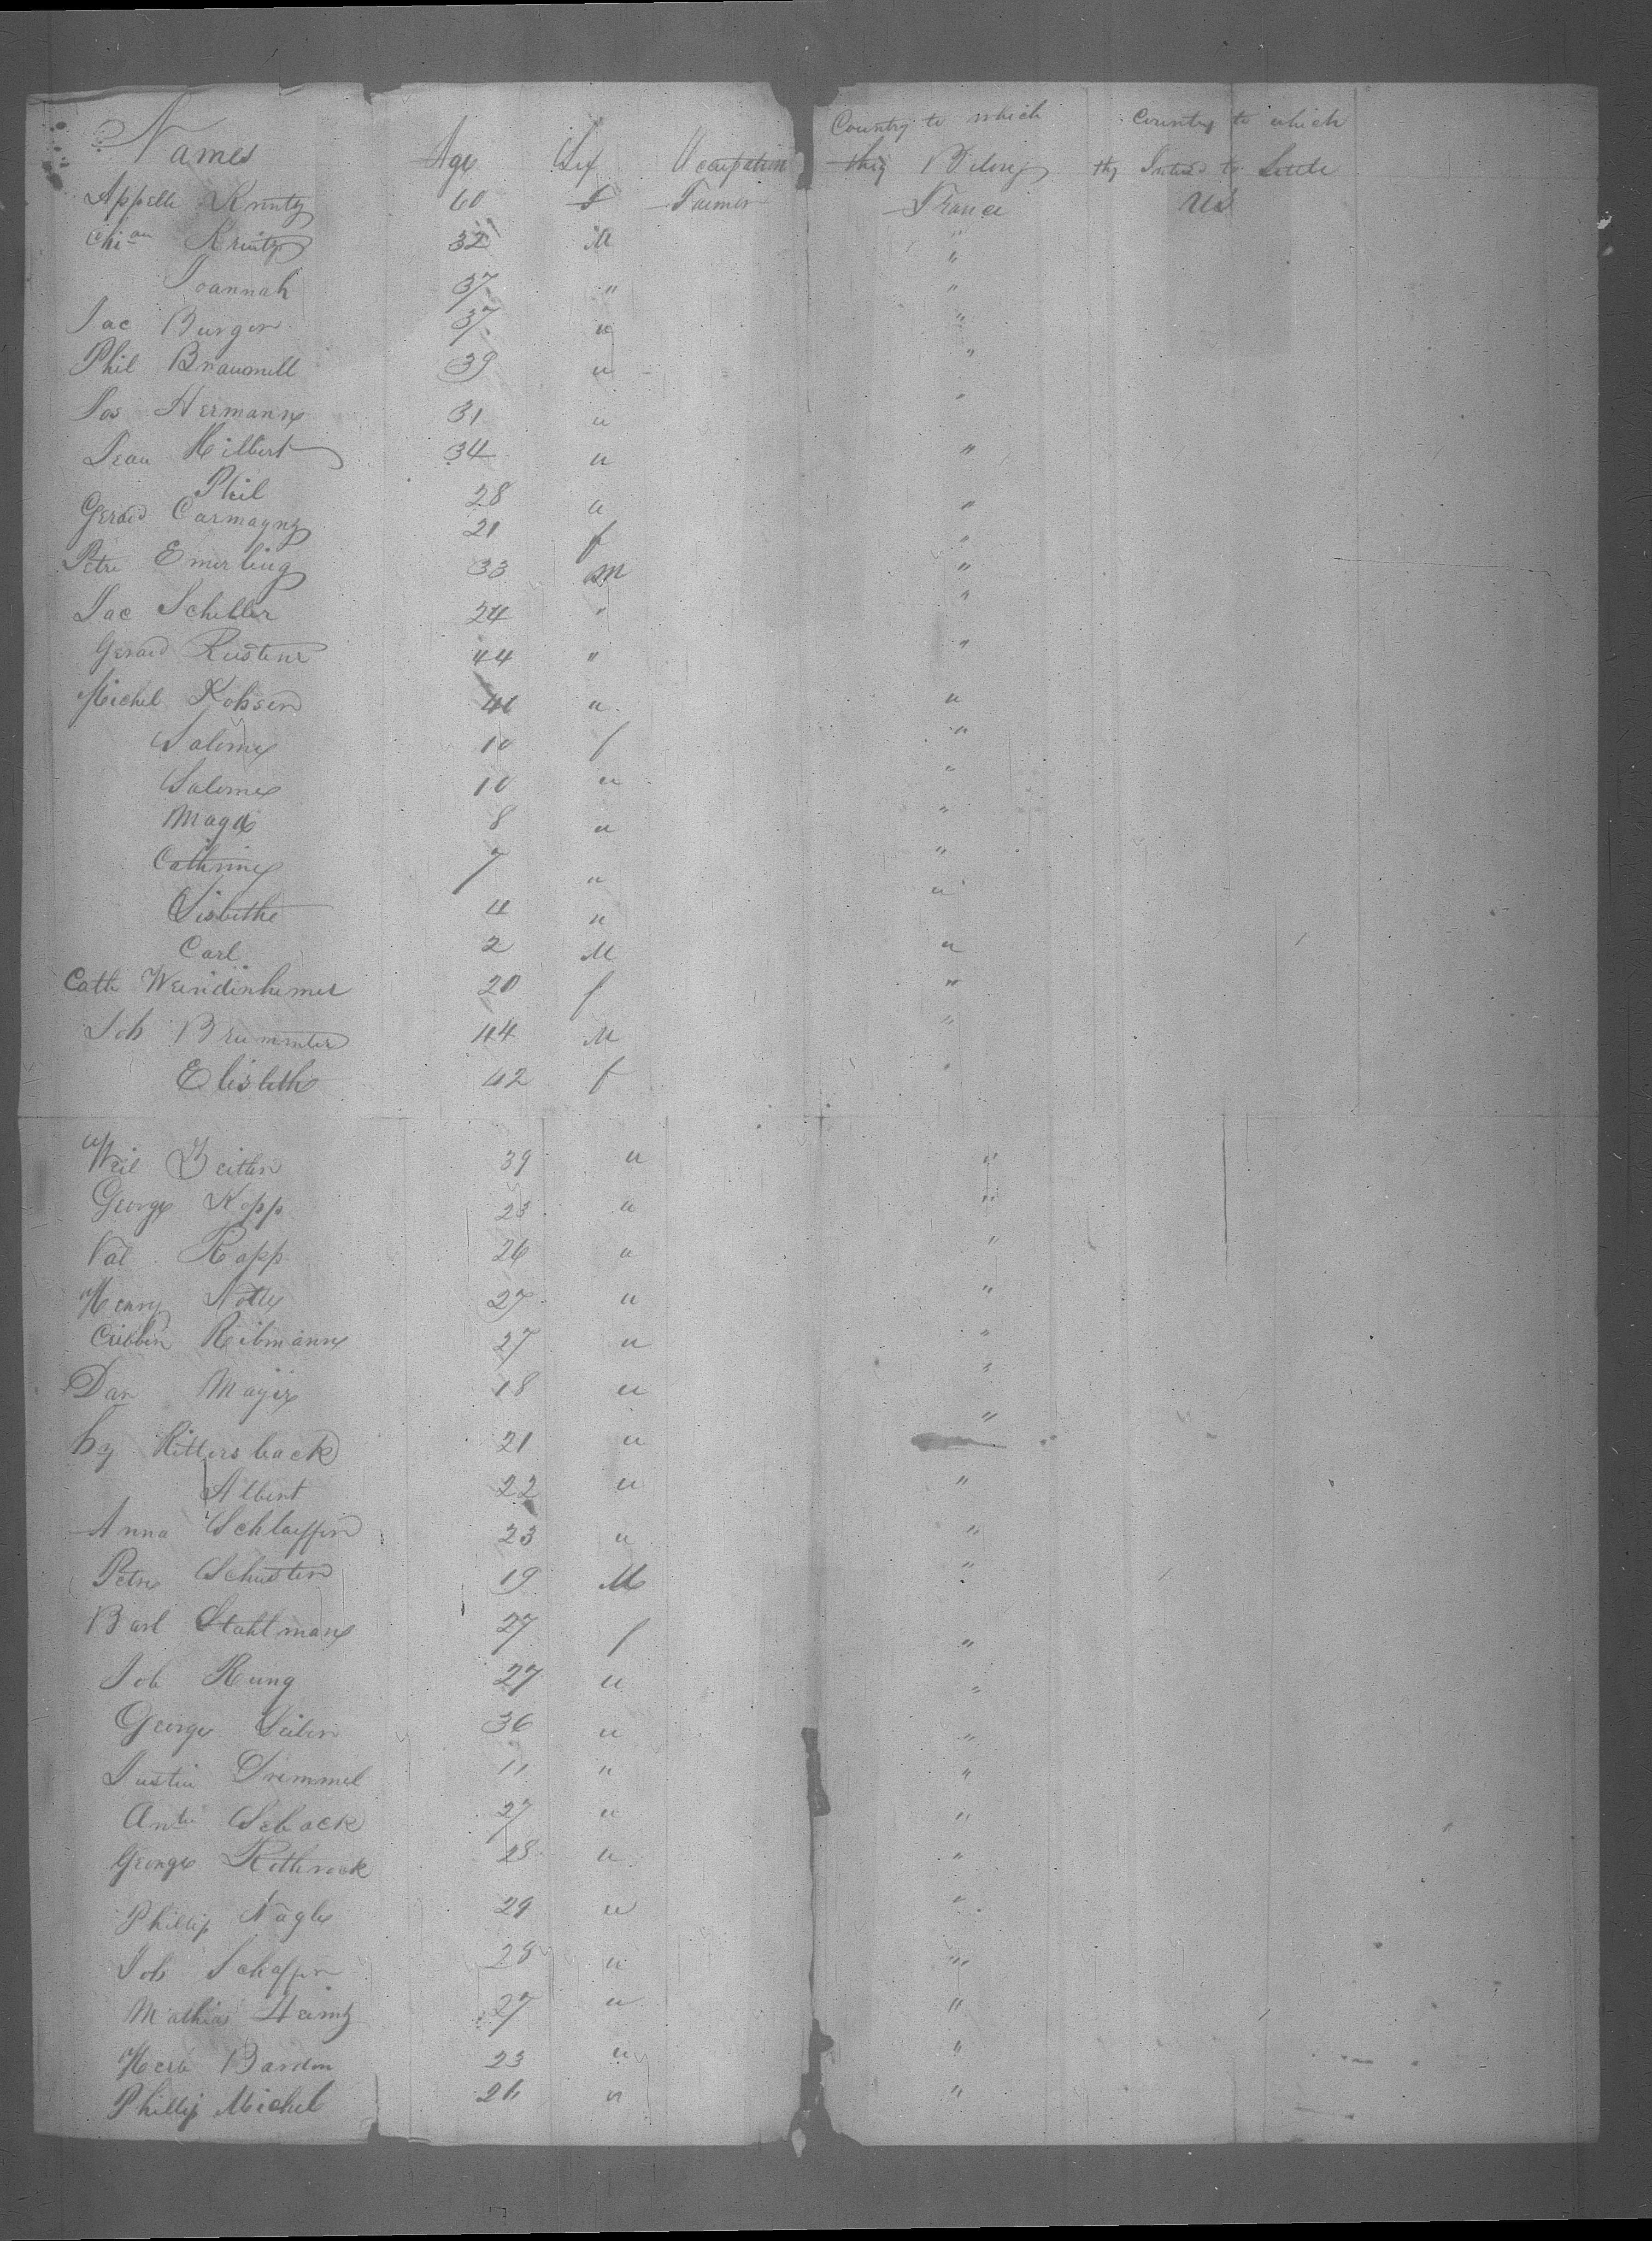 Names Age Sex Occupation Country to which they Belong Country to which thy Intend to Settle
Appelle Kuntz 60 f Farmer France US
Chian Kuntz 32 M "
Joannah 37 " "
Jac Burger 37 " "
Phil Braumill 39 " "
Jos Hermann 31 " "
Jean Hilbert 34 " "
Phil 28 " "
Gerard Carmagny 21 f "
Petre Emerling 33 M "
Jac Schiller 24 " "
Gerard Rustene 44 " "
Michel Kobser 41 " "
Salome 10 f "
Salome 10 " "
Magd 8 " "
Cathrine 7 " "
Lisbethe 4 " "
Carl 2 M "
Cath Weindenhemer 20 f "
Joh Brummter 44 M "
Elisbeth 42 f "
Weil Zeitler 39 " "
George Kopp 23 " "
Val Rapp 26 " "
Henry Nolle 27 " "
Reibmann 27 " "
Dan Mayer 18 " "
Hy Rittersback 21 " "
Albert 22 " "
Anna Schlaeffer 23 " "
Petre Schuster 19 M "
Barl Stahlman 27 f "
Job Rung 27 " "
George Seiler 36 " "
Justin Dremmel 11 " "
Ante Seback 27 " "
George Rothrock 28 " "
Phillip Nagle 29 " "
Joh Schaffer 28 " "
Mathias Heintz 27 " "
Herb Barden 23 " "
Phillip Michel 26 " "